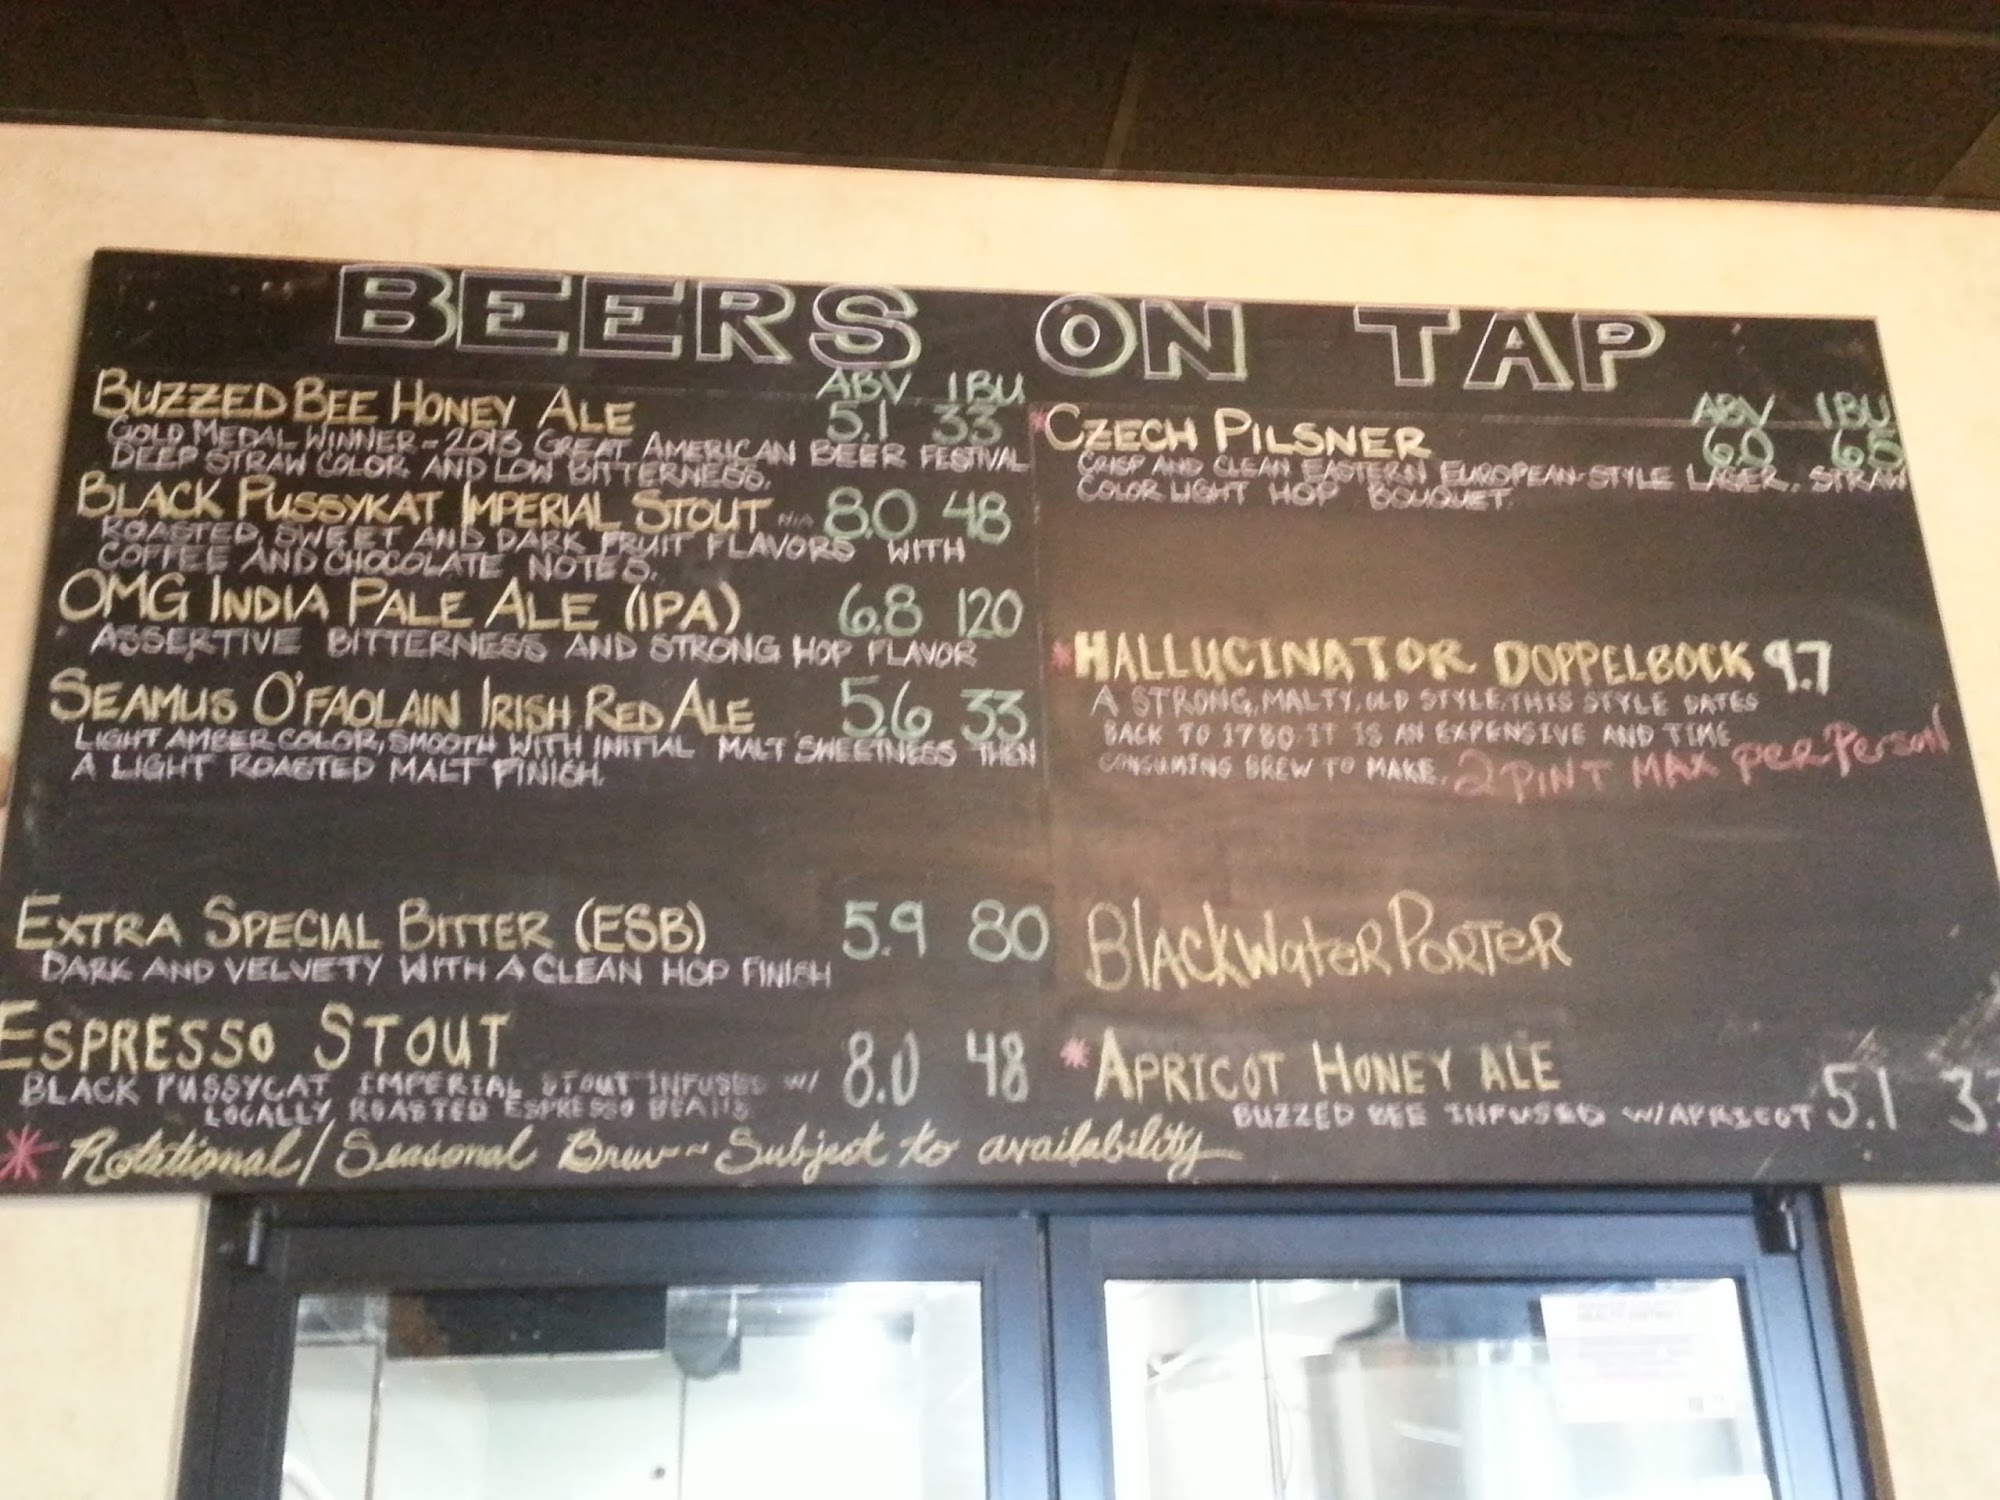 BEERS ON TAP
ABV IBU
BUZZED BEE HONEY ALE 5.1 33
GOLD MEDAL WINNER - 2013 GREAT AMERICAN BEER FESTIVAL
DEEP STRAW COLOR AND LOW BITTERNESS.
BLACK PUSSYKAT IMPERIAL STOUT 8.0 48
ROASTED, SWEET AND DARK FRUIT FLAVORS WITH
COFFEE AND CHOCOLATE NOTES.
OMG INDIA PALE ALE (IPA) 6.8 120
ASSERTIVE BITTERNESS AND STRONG HOP FLAVOR
SEAMUS O'FAOLAIN IRISH RED ALE 5.6 33
LIGHT AMBER COLOR, SMOOTH WITH INITIAL MALT SWEETNESS THEN
A LIGHT ROASTED MALT FINISH.
EXTRA SPECIAL BITTER (ESB) 5.9 80
DARK AND VELVETY WITH A CLEAN HOP FINISH
ESPRESSO STOUT 8.0 48
BLACK PUSSYCAT IMPERIAL STOUT INFUSED W/
LOCALLY ROASTED ESPRESSO BEANS
ABV IBU
* CZECH PILSNER 6.0 65
CRISP AND CLEAN EASTERN EUROPEAN-STYLE LAGER. STRAW
COLOR LIGHT HOP BOUQUET.
* HALLUCINATOR DOPPELBOCK 9.7
A STRONG, MALTY, OLD STYLE, THIS STYLE DATES
BACK TO 1780. IT IS AN EXPENSIVE AND TIME
CONSUMING BREW TO MAKE. 2 PINT MAX per Person
BlackWater Porter
* APRICOT HONEY ALE
BUZZED BEE INFUSED W/APRICOT 5.1
* Rotational/Seasonal Brew ~ Subject to availability